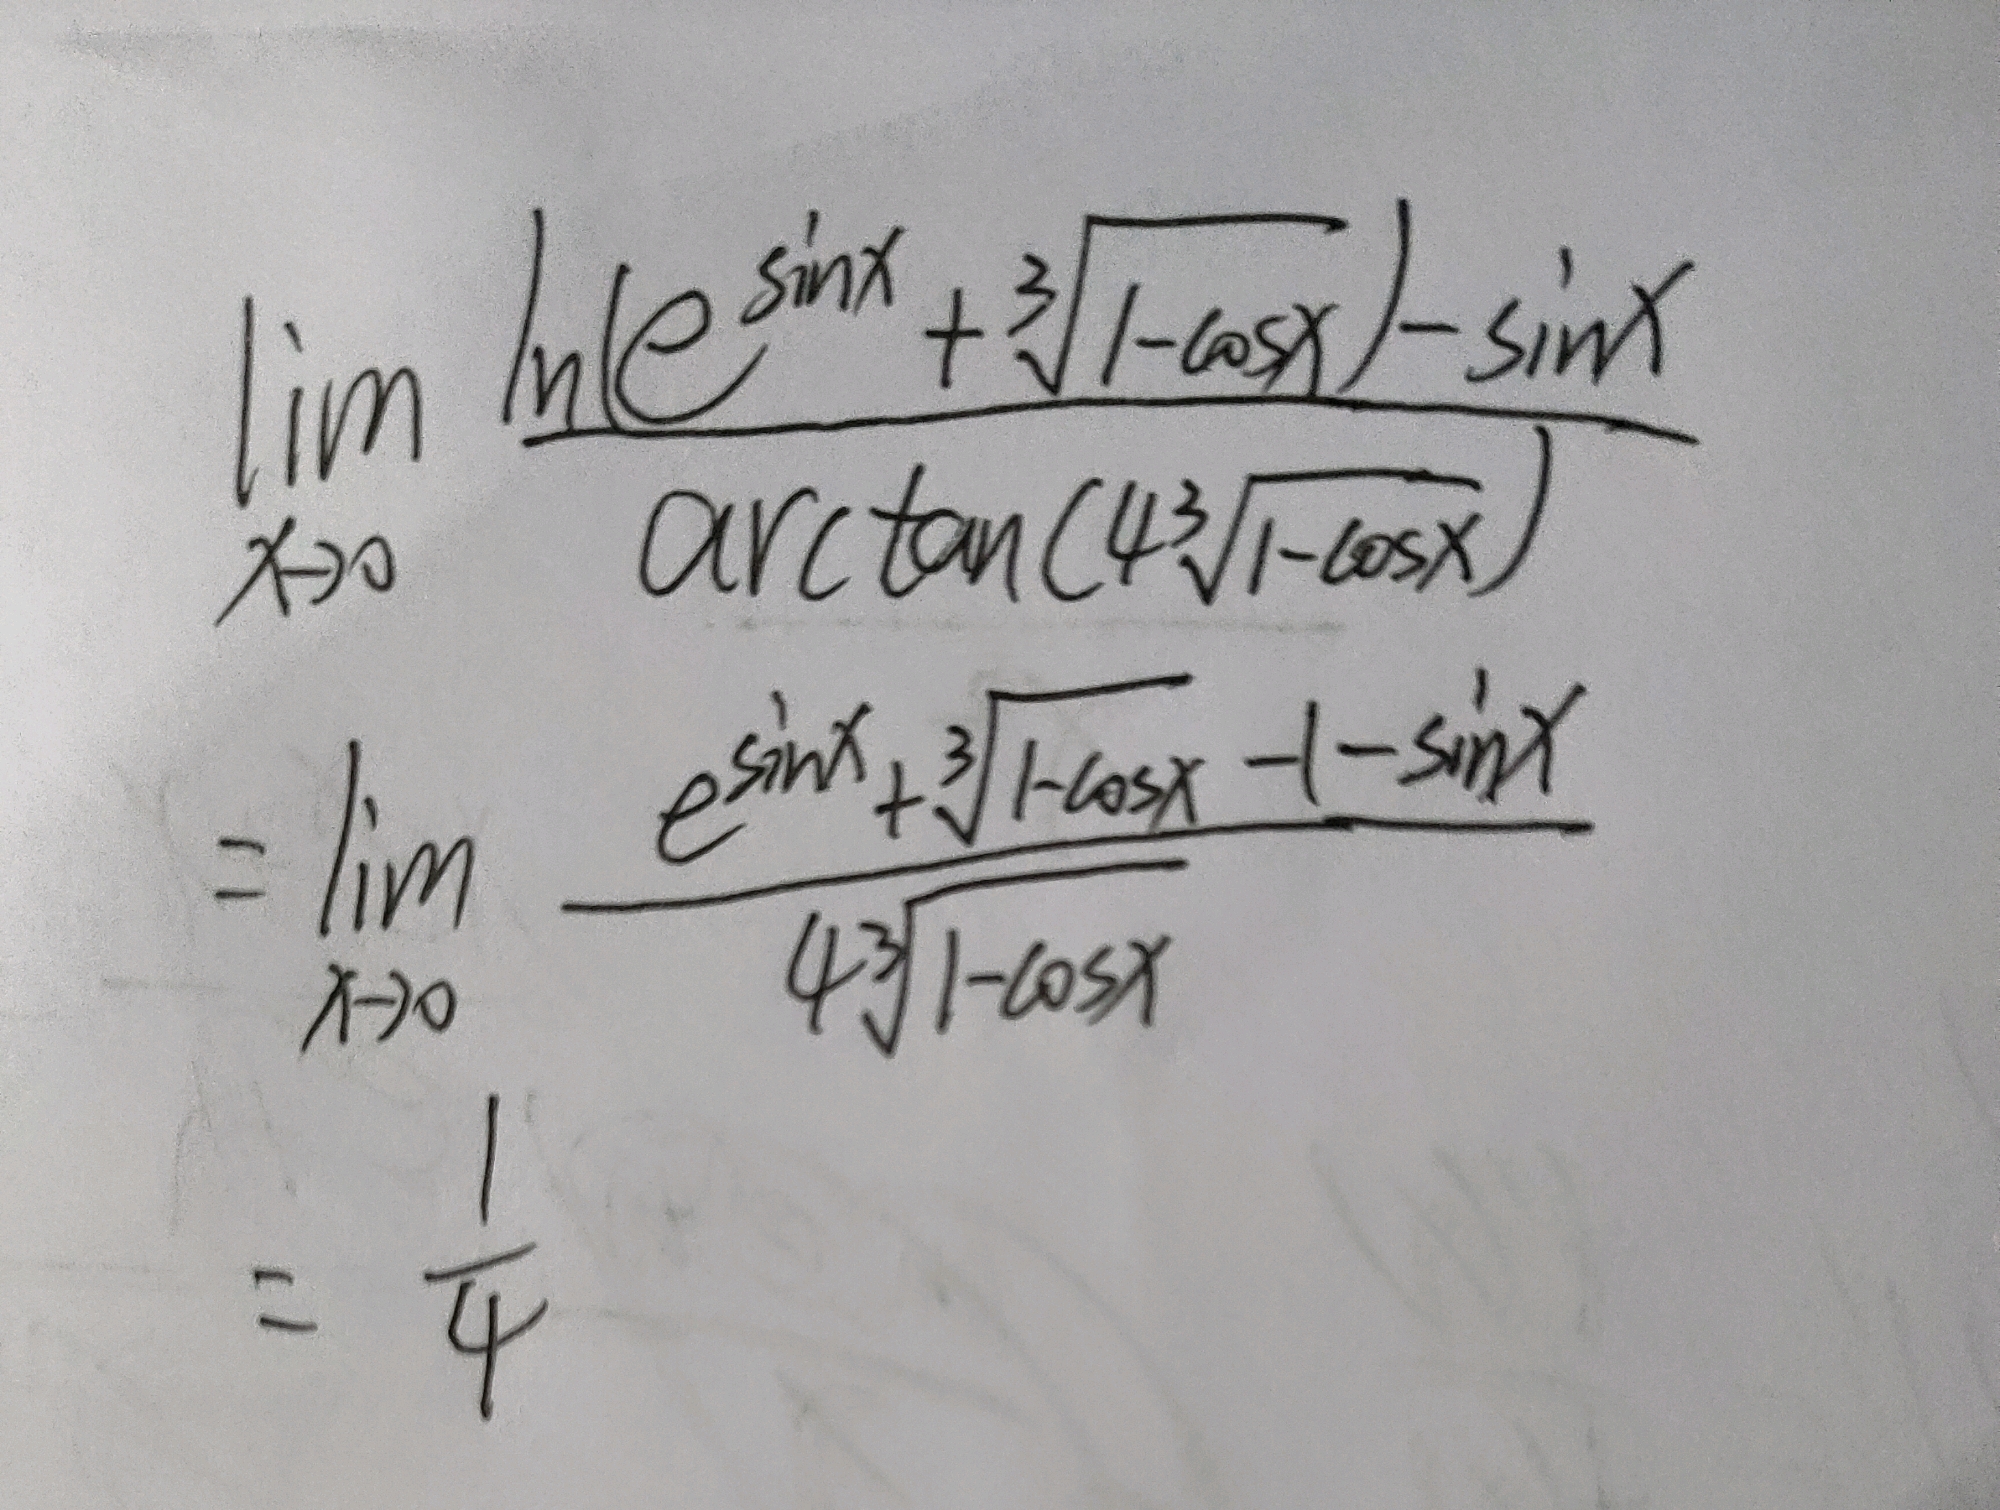 lim x→0 ln(e^sinx + ∛(1-cosx)) - sinx / arctan(4∛(1-cosx))
= lim x→0 e^sinx + ∛(1-cosx) - 1 - sinx / 4∛(1-cosx)
= 1/4